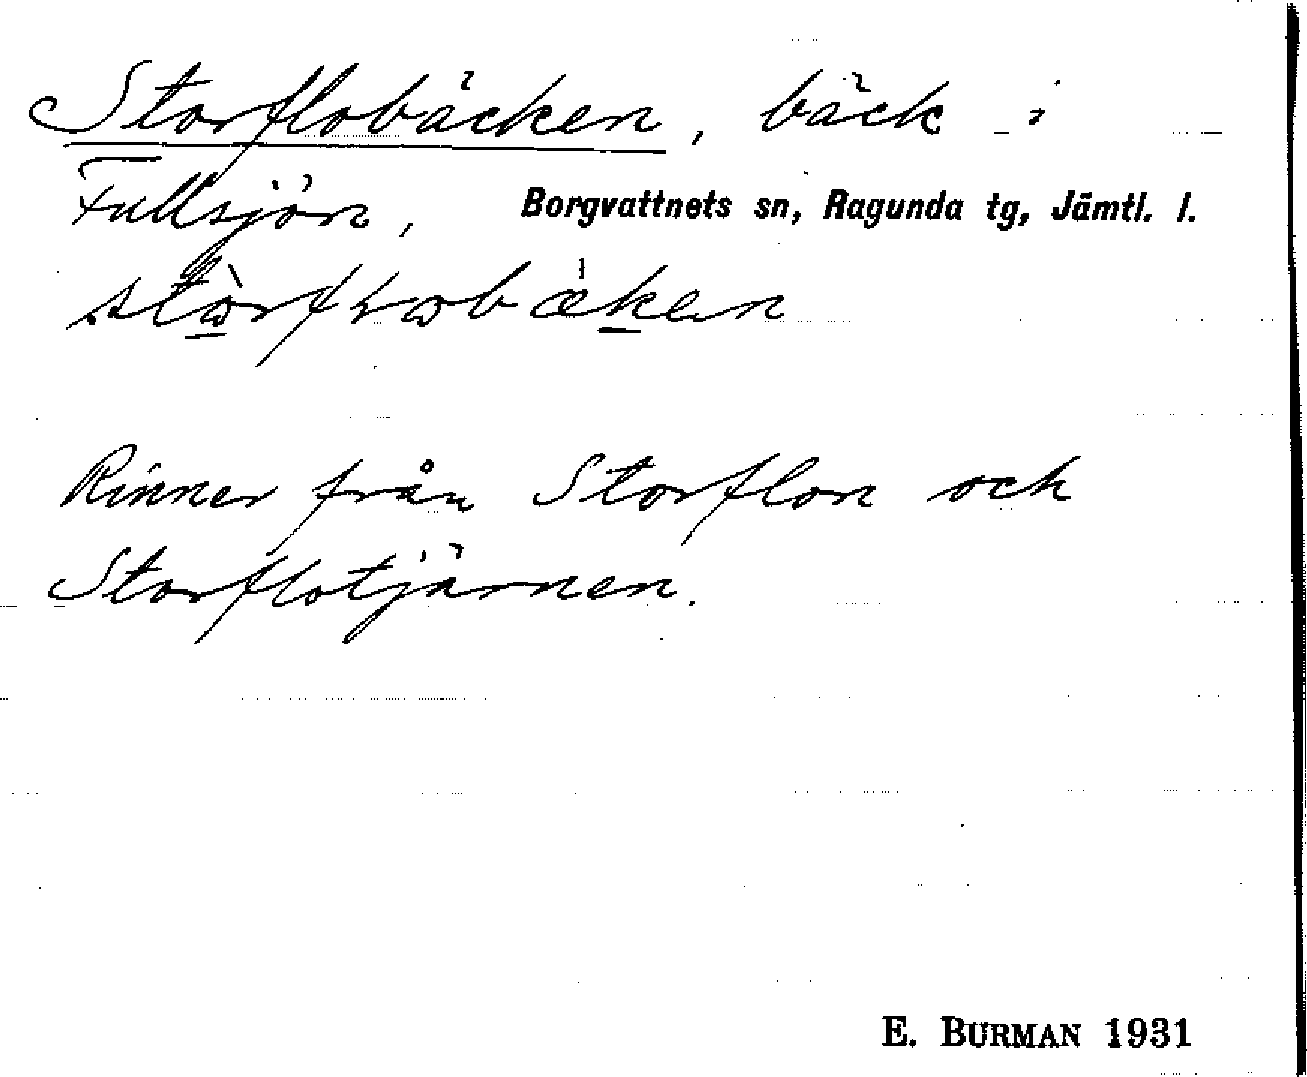 Storflobäcken, bäck i
Fullsjön, Borgvattnets sn, Ragunda tg, Jämtl. l.
Rinner från Storflon och
Storflotjärnen.
E. BURMAN 1931